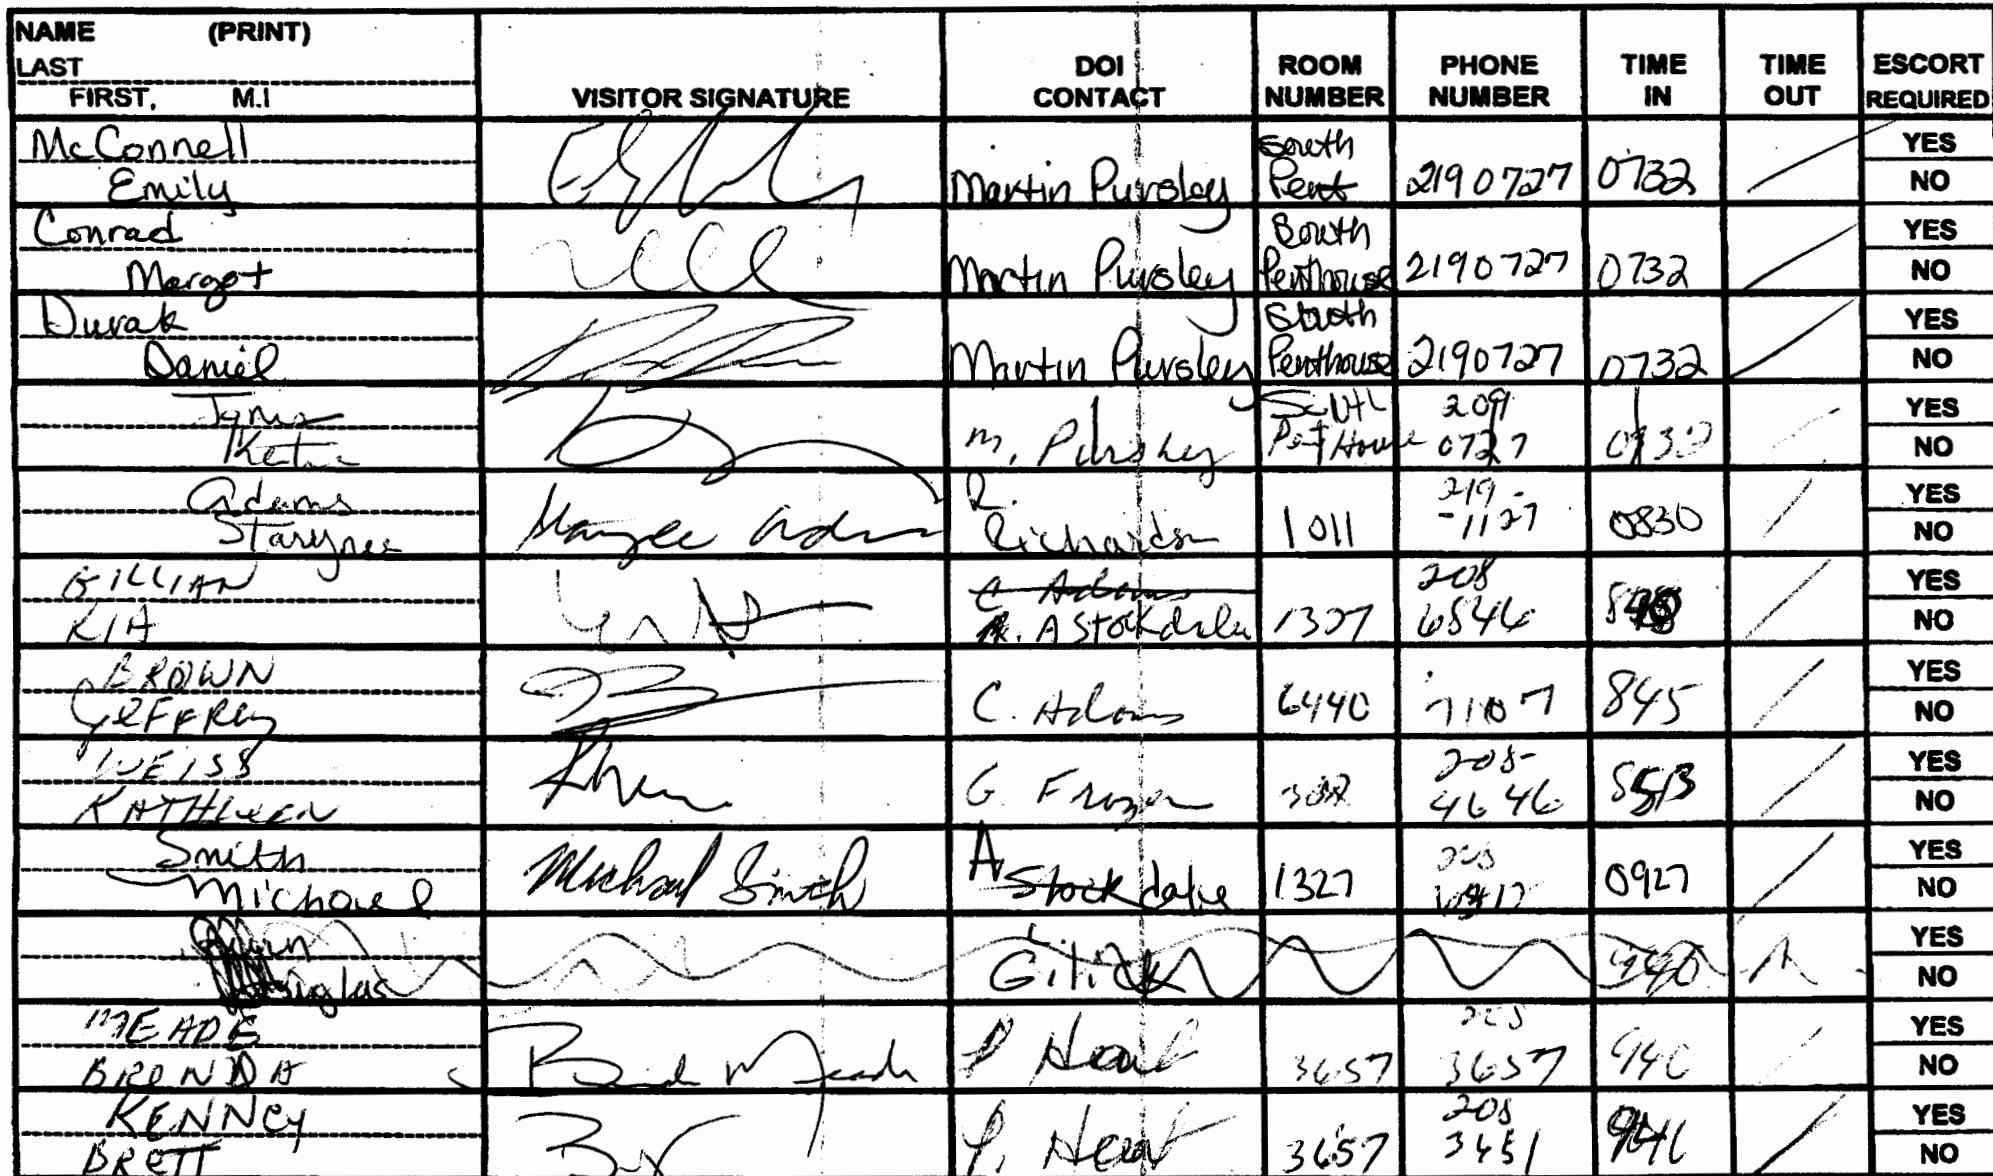 NAME (PRINT)
LAST
FIRST, M.I
VISITOR SIGNATURE
DOI CONTACT
ROOM NUMBER
PHONE NUMBER
TIME IN
TIME OUT
ESCORT REQUIRED
McConnell
Emily
Martin Pursley
South Pent
2190727
0732
YES
NO
Conrad
Margot
Martin Pursley
South Penthouse
2190727
0732
YES
NO
Durak
Daniel
Martin Pursley
South Penthouse
2190727
0732
YES
NO
M. Pursley
South Pent House
0727
YES
NO
Adams
Starynee
R. Richardson
1011
219-
-1127
0830
YES
NO
GILLIAN
KIA
C Adams
A Stockdale
1327
208
6546
YES
NO
BROWN
JeFFRey
C. Adams
6440
71107
845
YES
NO
WEISS
KATHLEEN
G Frazer
208-
4646
YES
NO
Smith
Michael
Michael Smith
A Stockdale
1327
0927
YES
NO
YES
NO
MEADE
BRENDA
P Heart
3657
208
3657
940
YES
NO
KENNEY
BRETT
P. Heart
3657
208
YES
NO